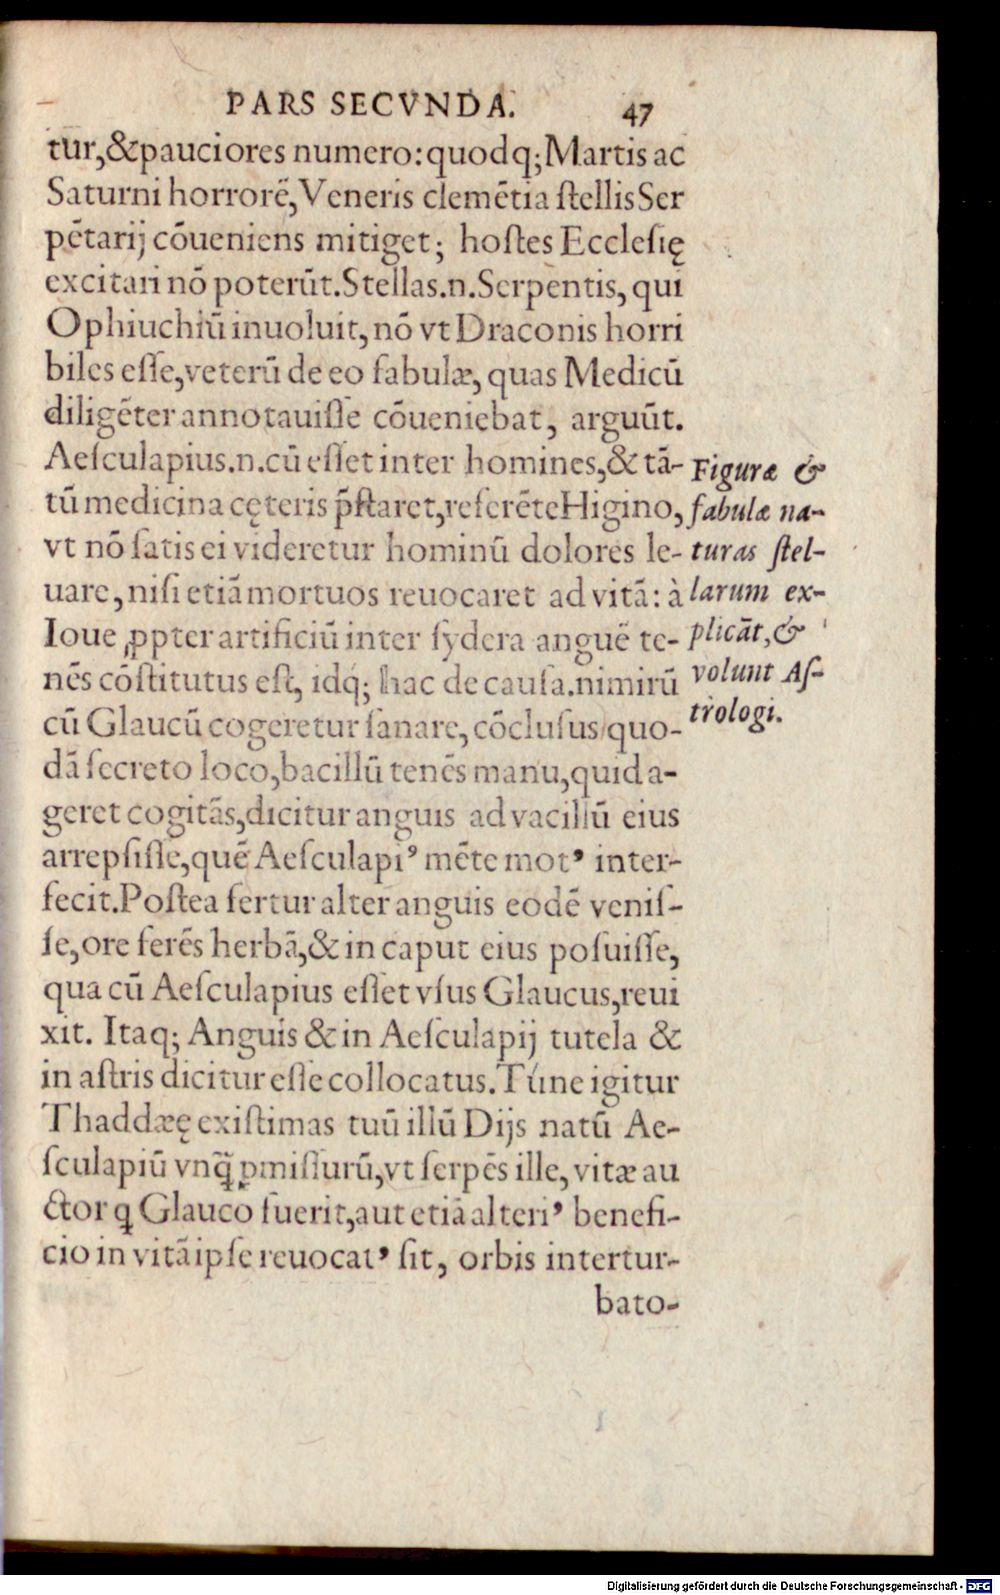 PARS SECVNDA. 47
tur,&pauciores numero:quodq;Martis ac
Saturni horrorẽ,Veneris clemẽtia ſtellisSer
pẽtarij cõueniens mitiget; hoſtes Eccleſię
excitari nõ poterũt.Stellas.n.Serpentis, qui
Ophiuchiũ inuoluit, nõ vt Draconis horri
biles eſſe,veterũ de eo fabulæ, quas Medicũ
diligẽter annotauiſſe cõueniebat, arguũt.
Aeſculapius.n.cũ eſſet inter homines,& tã-
tũ medicina cęteris p̃ſtaret,referẽteHigino,
vt nõ ſatis ei videretur hominũ dolores le-
uare, niſi etiã mortuos reuocaret ad vitã: à
Ioue ꝓpter artificiũ inter ſydera anguẽ te-
nẽs cõſtitutus eſt, idq; hac de cauſa.nimirũ
cũ Glaucũ cogeretur ſanare, cõcluſus quo-
dã ſecreto loco,bacillũ tenẽs manu,quid a-
geret cogitãs,dicitur anguis ad vacillũ eius
arrepſiſſe,quẽ Aeſculapiꝰ mẽte motꝰ inter-
fecit.Poſtea fertur alter anguis eodẽ veniſ-
ſe,ore ferẽs herbã,& in caput eius poſuiſſe,
qua cũ Aeſculapius eſſet vſus Glaucus,reui
xit. Itaq; Anguis & in Aeſculapij tutela &
in aſtris dicitur eſſe collocatus.Túne igitur
Thaddæę exiſtimas tuũ illũ Dijs natũ Ae-
ſculapiũ vnq̃ ꝑmiſſurũ,vt ſerpẽs ille, vitæ au
ctor q Glauco fuerit,aut etiã alteriꝰ benefi-
cio in vitã ipſe reuocatꝰ ſit, orbis intertur-
bato-
Figuræ &
fabulæ na-
turas ſtel-
larum ex-
plicãt,&
volunt Aſ-
trologi.
Digitalisierung gefördert durch die Deutsche Forschungsgemeinschaft - DFG